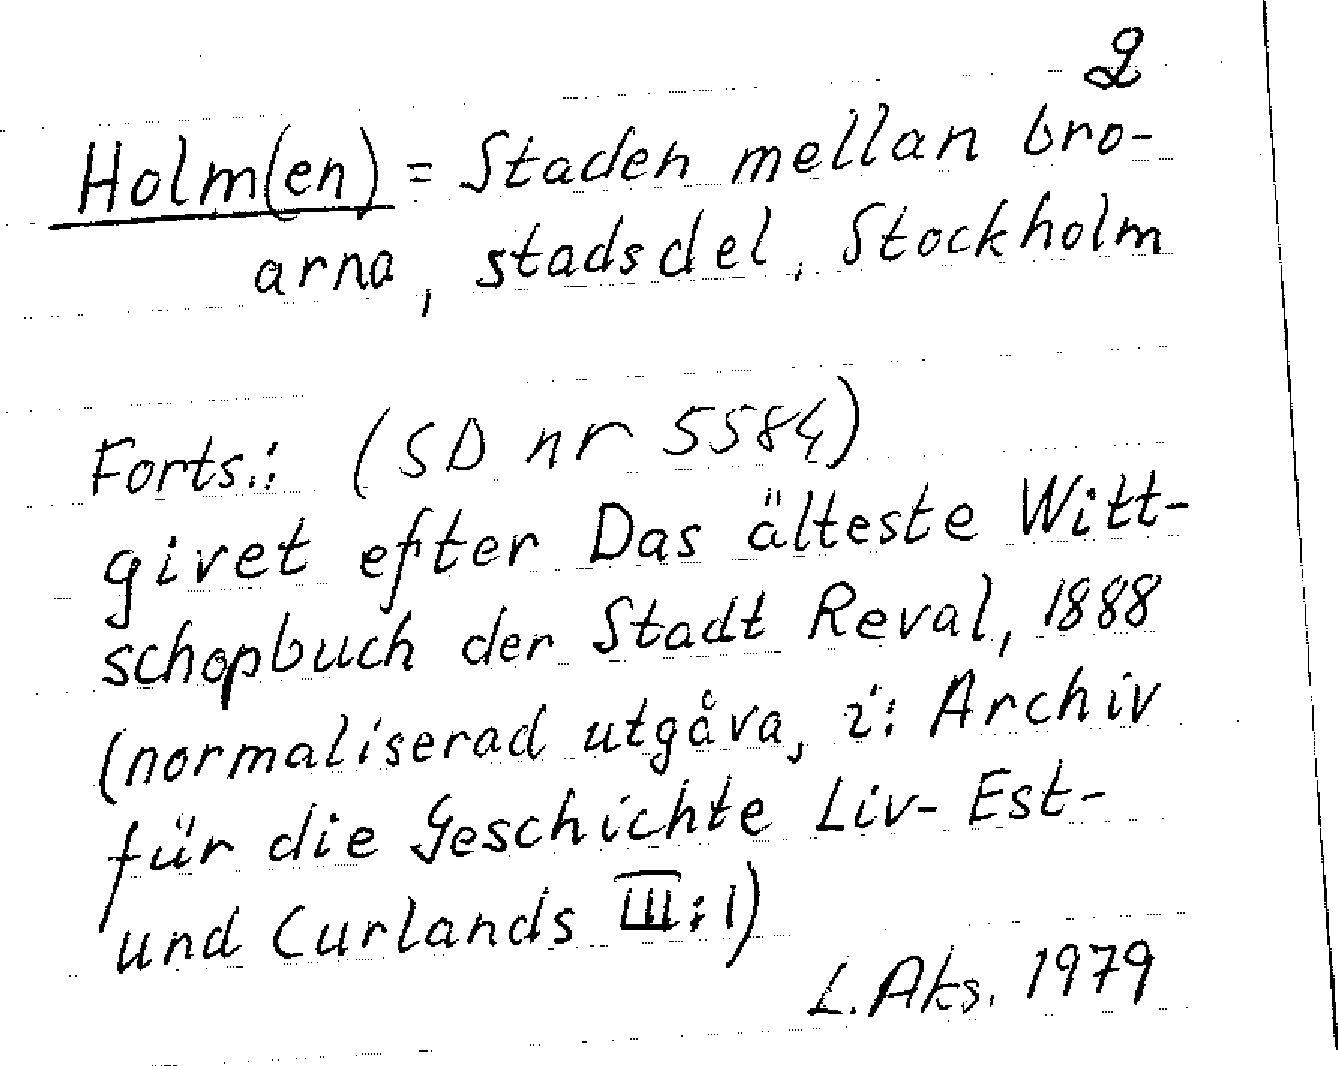 2
Holm(en) = Staden mellan bro-
arna, stadsdel, Stockholm
Forts.: (SD nr 5584)
givet efter Das älteste Witt-
schopbuch der Stadt Reval, 1888
(normaliserad utgåva, i: Archiv
für die Geschichte Liv- Est-
und Curlands III:1)
L. Aks. 1979